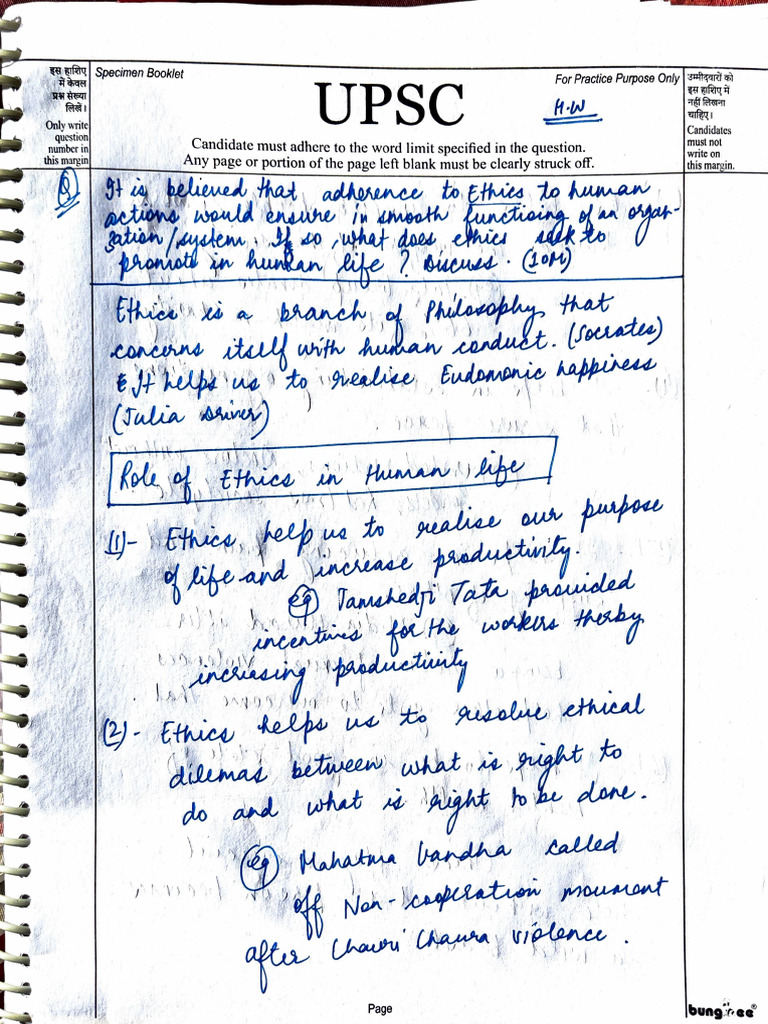 इस हाशिए
में केवल
प्रश्न संख्या
लिखें।
Only write
question
number in
this margin
Specimen Booklet
For Practice Purpose Only
UPSC
H.W
Candidate must adhere to the word limit specified in the question.
Any page or portion of the page left blank must be clearly struck off.
उम्मीदवारों को
इस हाशिए में
नहीं लिखना
चाहिए।
Candidates
must not
write on
this margin.
Q
It is believed that adherence to Ethics to human
actions would ensure in smooth functioing of an organ-
zation/system. If so, what does ethics seek to
promote in human life? Discuss. (10M)
Ethics is a branch of Philosophy that
concerns itself with human conduct. (Socrates)
& It helps us to realise Eudomonic happiness
(Julia Driver)
Role of Ethics in Human life
(1)- Ethics help us to realise our purpose
of life and increase productivity.
eg Jamshedji Tata provided
incentives for the workers therby
increasing productivity
(2)- Ethics helps us to resolve ethical
dilemas between what is right to
do and what is right to be done.
eg Mahatma Gandha called
off Non-cooperation movement
after Chauri Chaura violence.
Page